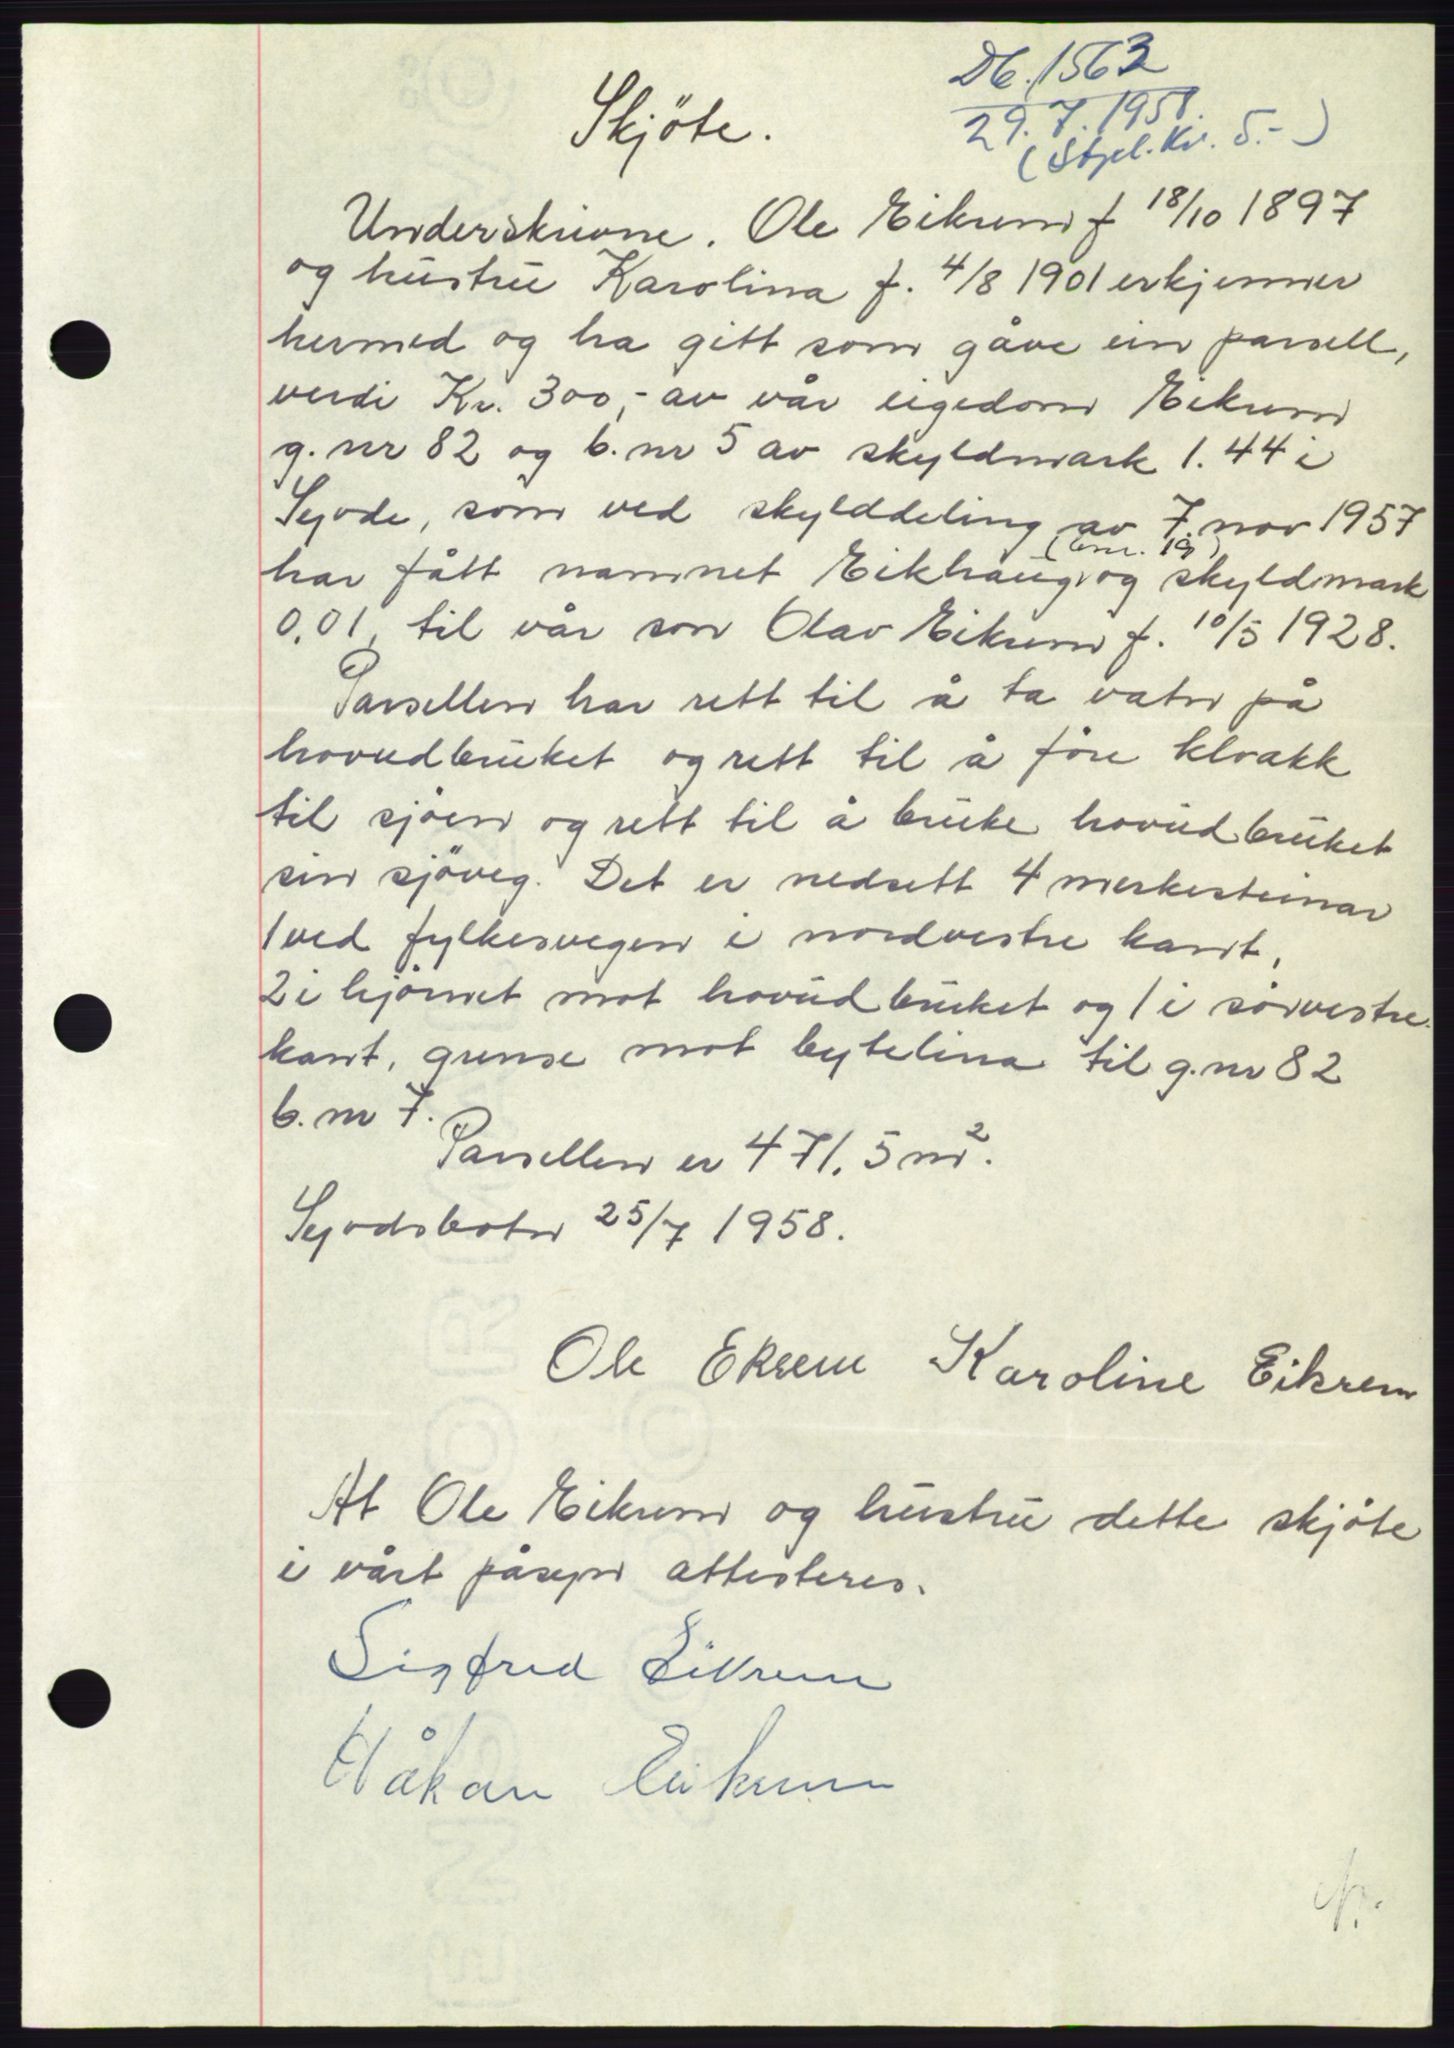 Db. 1563
29. 7. 1958.
(Stpl. Kr. 5.-)
Skjöte.
Underskrivne. Ole Eikrem f 18/10 1897
og hustru Karolina f. 4/8 1901 erkjenner
hermed og ha gitt som gåve ein parsell,
verdi Kr. 300,- av vår eigedom Eikrem
g. nr 82 og b. nr 5 av skyldmark 1.44 i
Syvde, som ved skylddeling av 7. nov 1957
(bnr. 19)
har fått namnet Eikhaug og skyldmark
0,01, til vår son Olav Eikrem f. 10/5 1928.
Parsellen har rett til å ta vatn på
hovudbruket og rett til å före kloakk
til sjöen og rett til å bruke hovudbruket
sin sjöveg. Det er nedsett 4 merkesteinar
1 ved fylkesvegen i nordvestre kant,
2 i hjörnet mot hovudbruket og 1 i sörvestre
kant, grense mot bytelina til g. nr 82
b. nr 7.
Parsellen er 471.5 m².
Syvdsbotn 25/7 1958.
Ole Ekrem Karoline Eikrem
At Ole Eikrem og hustru dette skjöte
i vårt påsyn attesteres.
Sigfred Eikrem
Håkan Eikrem